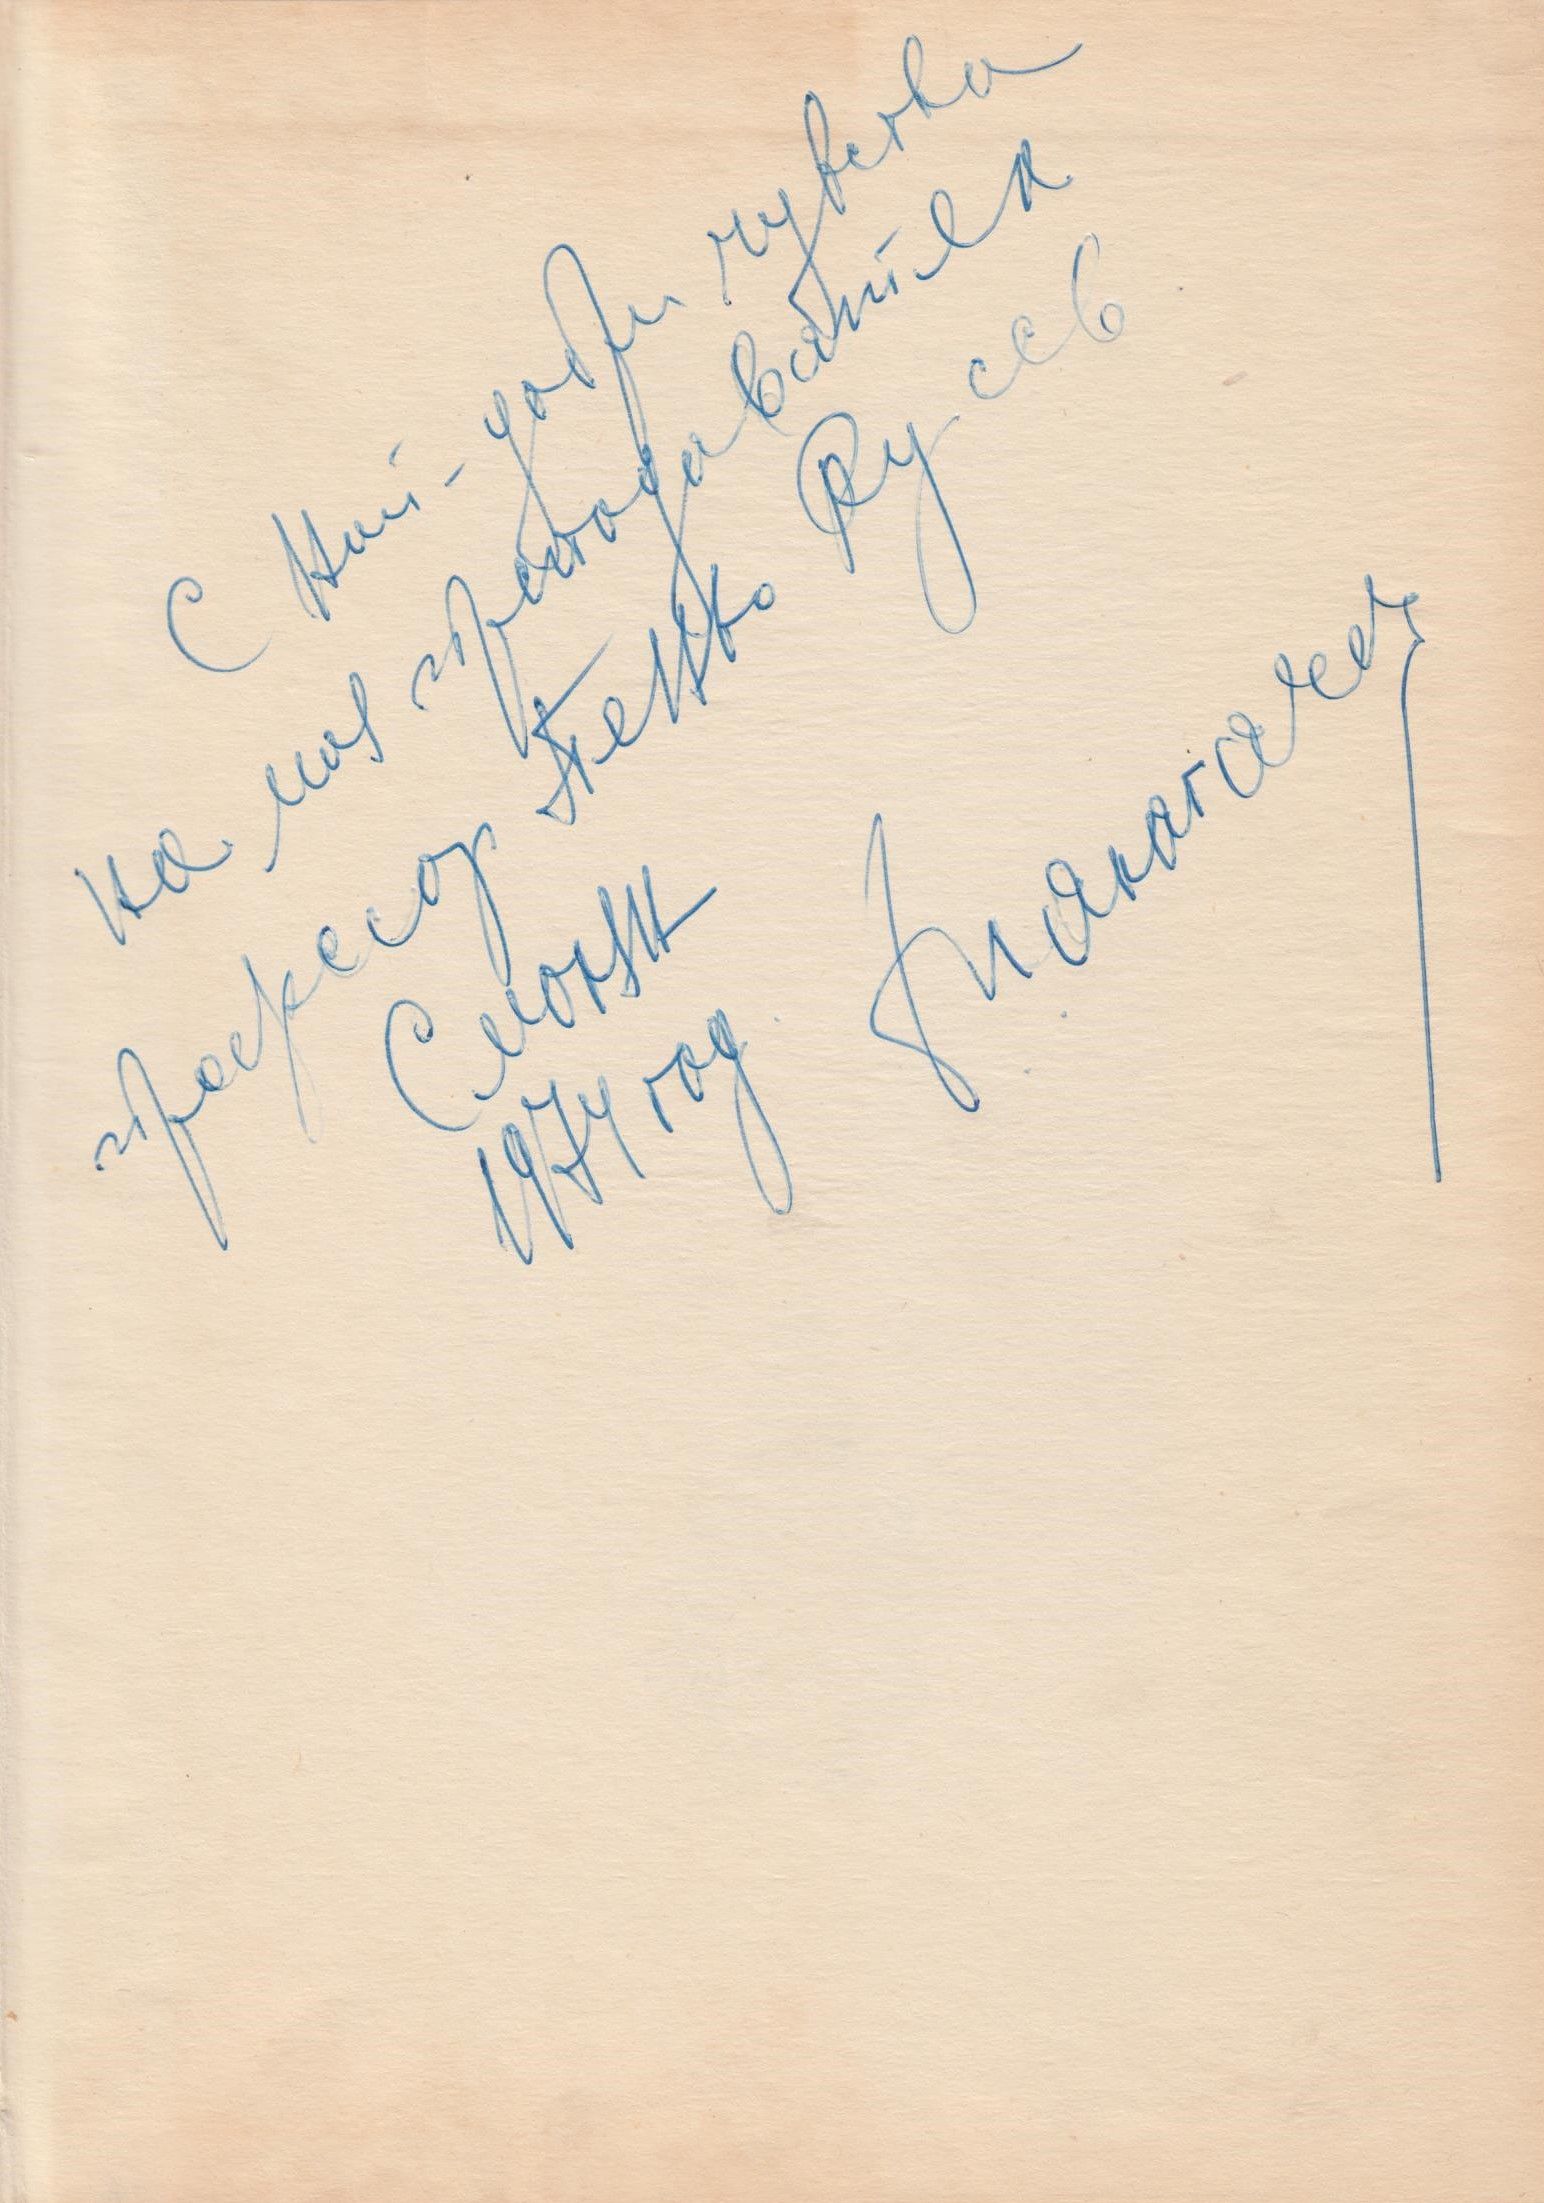 С най-добри чувства
на моя преподавател
професор Пенко Русев
1974 год.